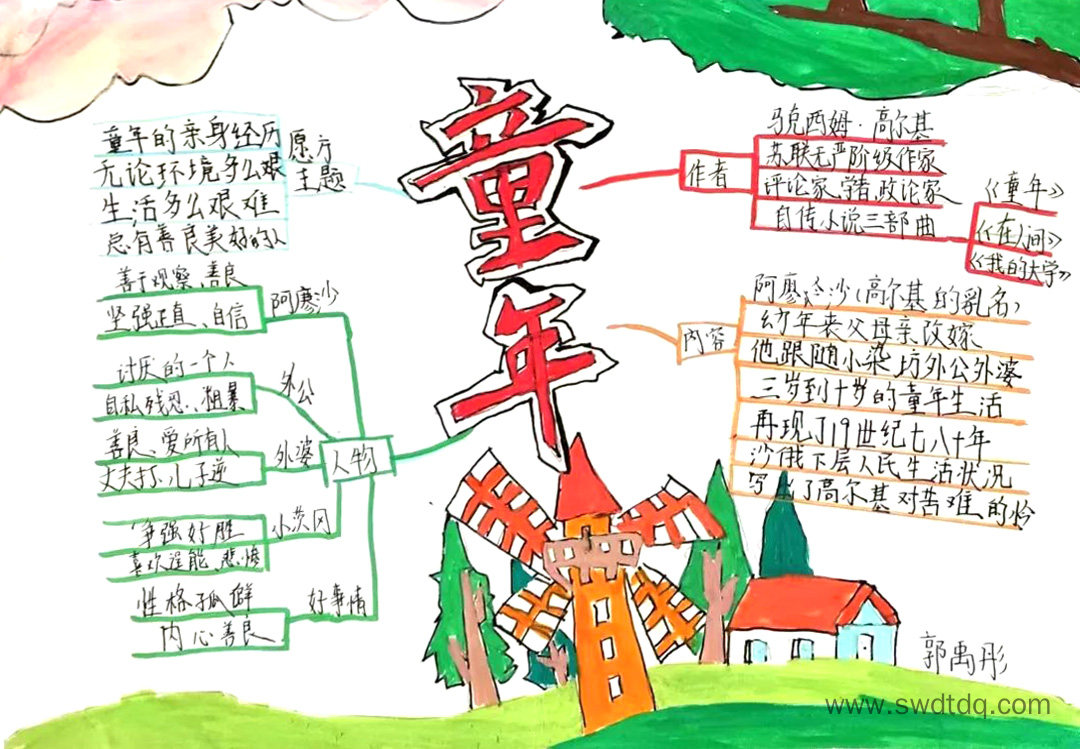 童年
愿方
主题
童年的亲身经历
无论环境多么艰
生活多么艰难
总有善良美好的人
作者
马克西姆·高尔基
苏联无产阶级作家
评论家、学者、政论家
自传小说三部曲
《童年》
《在人间》
《我的大学》
内容
阿廖沙(高尔基的乳名)
幼年丧父母亲改嫁
他跟随小染坊外公外婆
三岁到十岁的童年生活
再现了19世纪七八十年
沙俄下层人民生活状况
写了高尔基对苦难的
人物
阿廖沙
善于观察、善良
坚强正直、自信
外公
讨厌的一个人
自私残忍、粗暴
外婆
善良、爱所有人
丈夫打、儿子逆
小茨冈
争强好胜
喜欢逞能、悲惨
好事情
性格孤僻
内心善良
郭禹彤
www.swdtdq.com